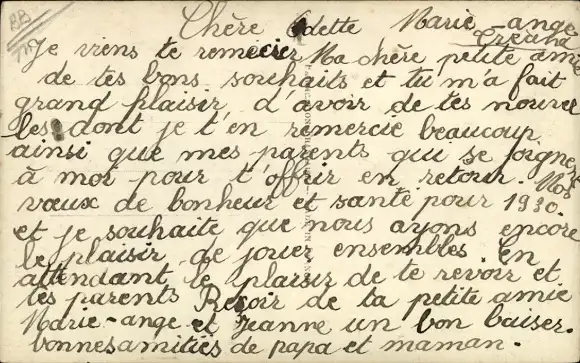 Chère Odette Marie-ange
Je viens te remecier Ma chère petite amie
de tes bons souhaits et tu m'a fait
grand plaisir d'avoir de tes nouvel
les dont je t'en remercie beaucoup
ainsi que mes parents qui se joignent
à moi pour t'offrir en retour. Nos
vœux de bonheur et santé pour 1930.
et je souhaite que nous ayons encore
le plaisir de jouer ensembles. En
attendant le plaisir de te revoir et
tes parents Reçoir de ta petite amie
Marie-ange et Jeanne un bon baiser.
bonnes amitiés de papa et maman.